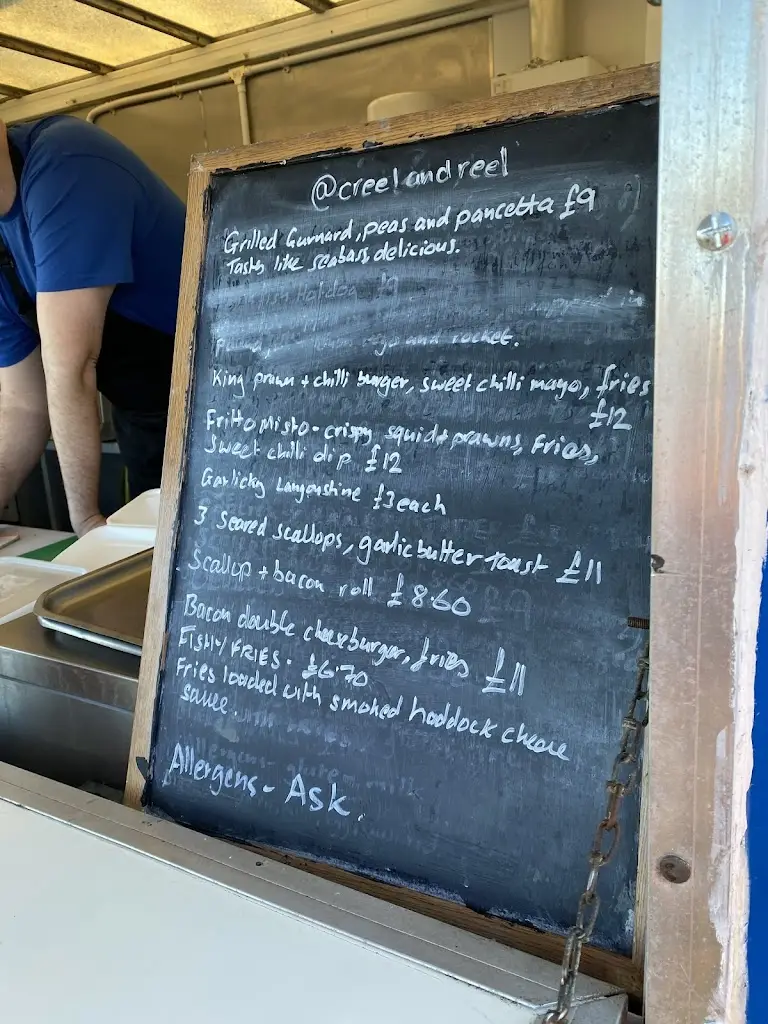 @creelandreel
Grilled Gurnard, peas and pancetta £9
Tastes like seabass, delicious.
and rocket.
King prawn + chilli burger, sweet chilli mayo, fries
£12
Fritto Misto - crispy squid + prawns, Fries,
Sweet chilli dip £12
Garlicky Langoustine £3 each
3 Seared scallops, garlic butter toast £11
Scallop + bacon roll £8.60
Bacon double cheeseburger, fries £11
FISHY FRIES. £6.70
Fries loaded with smoked haddock cheese
sauce.
Allergens - Ask.